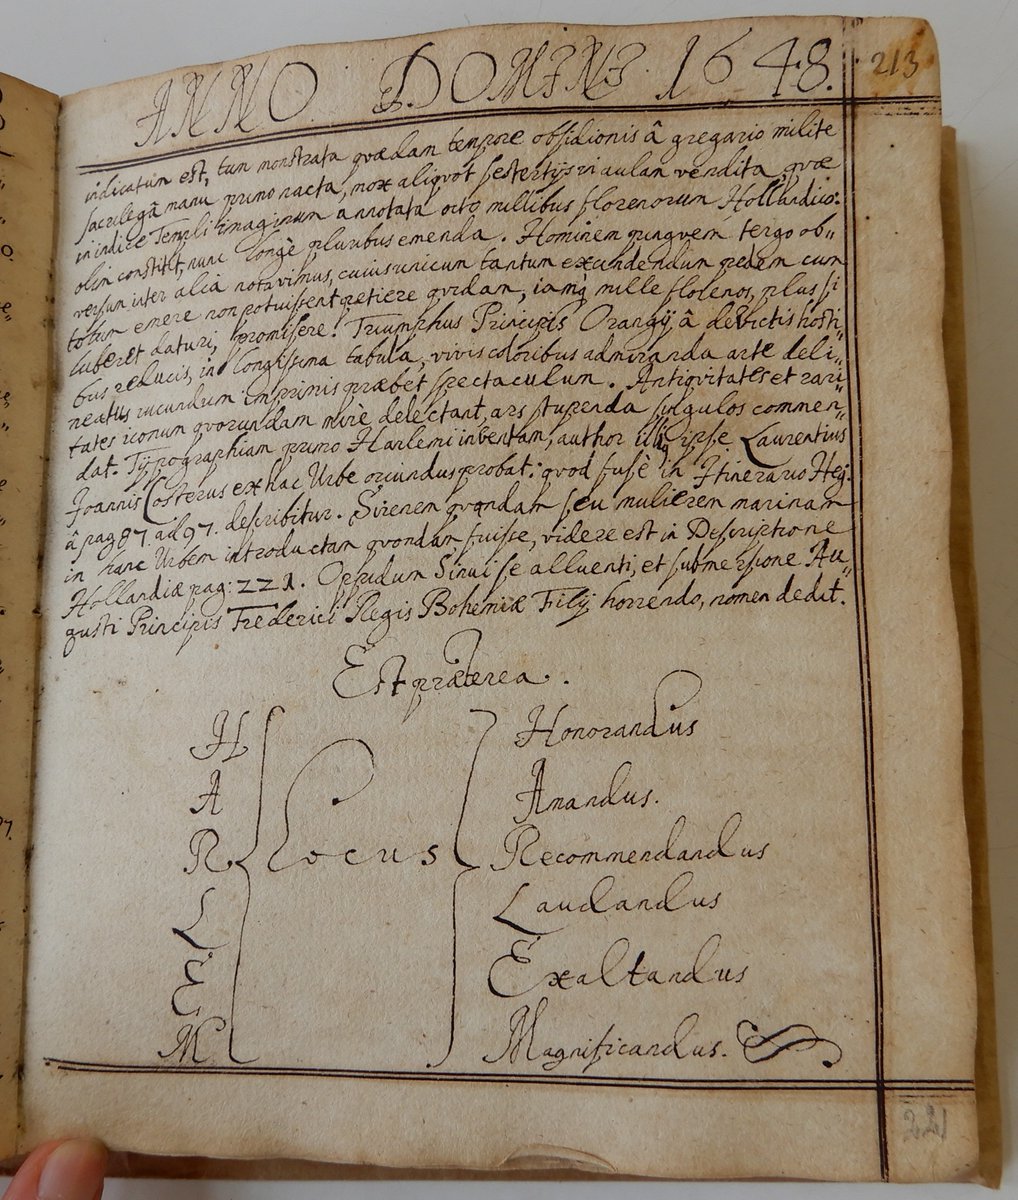 ANNO DOMINI 1648.
213
indicatum est, tum monstrata quædam tempore obsidionis â gregario milite
sacrilegâ manu primo nacta, mox aliquot sestertijs in aulam vendita, quæ
in indice Templi imaginum annotata octo millibus florenorum Hollandico:
olim constitit, nunc longè pluribus emenda. Hominem pinguem tergo ob„
versum inter alia notavimus, cuius unicum tantum excindendum pedem cum
totum emere non potuissent petiere quidam, iamq̃ mille florenos, plus si
luberet daturi, promisere! Triumphus Principis Orangij â devictis hosti„
bus reducis, in longissima tabula, vivis coloribus admiranda arte deli„
neatus iucundum imprimis præbet spectaculum. Antiquitates et rari„
tates iconum quorundam mire delectant, ars stupenda singulos commen„
dat. Typographiam primo Harlemi inventam, author illiq̃ ipse Laurentius
Joannis Costerus ex hac Urbe oriundus probat: quod fusè in Itinerario Heg.
â pag 87. ad 97. describitur. Sirenem quandam seu mulierem marinam
in hanc Urbem introductam quondam fuisse, videre est in Descriptione
Hollandiæ pag: 221. Oppidum Sinui se alluenti, et submersione Au„
gusti Principis Frederici Regis Bohemiæ Filij horrendo, nomen dedit.
Est præterea.
H Honorandus
A Amandus.
R Locus Recommendandus
L Laudandus
E Exaltandus
M Magnificandus.
221